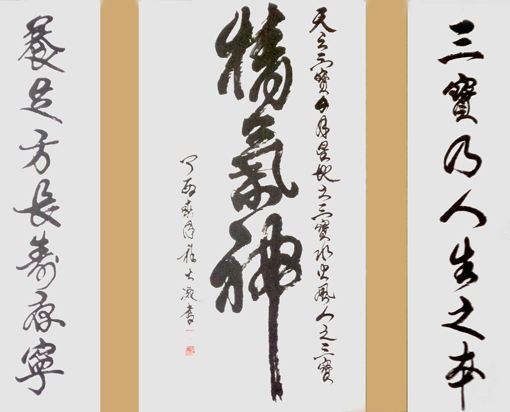 三寶乃人生之本
天之三寶日月星地之三寶水火風人之三寶
精氣神
丁酉 月 大 書
養足方長壽康寧